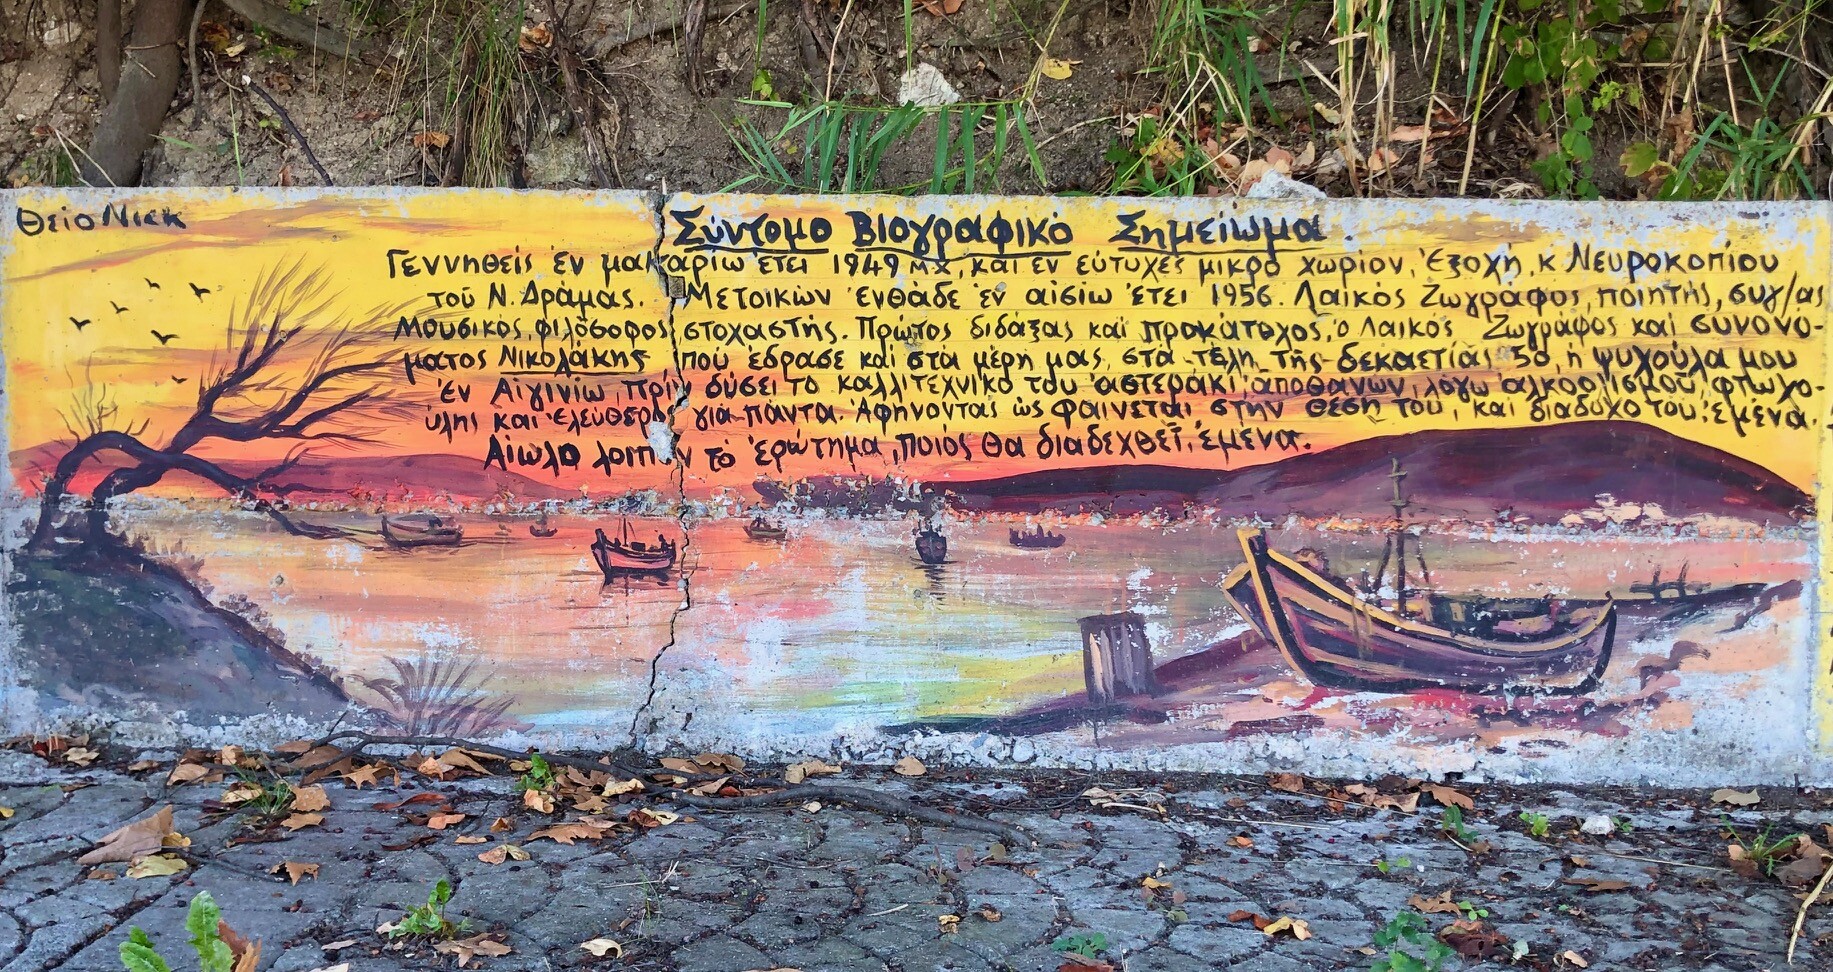 Θείο Νίεκ
Σύντομο Βιογραφικό Σημείωμα.
Γεννηθείς ἐν μακαρίω ἔτει 1949 μ.χ, και εν εὐτυχές μικρό χωρίον, Ἐξοχή, κ Νευροκοπίου
τοῦ Ν. Δράμας. Μετοικών ἐνθάδε ἐν αἰσίω ἔτει 1956. Λαικός Ζωγράφος, ποιητής, συγ/ας
Μουσικός, φιλόσοφος στοχαστής. Πρώτος διδάξας και προκάτοχος, ὁ Λαικός Ζωγράφος και συνονό-
ματος Νικολάκης που ἔδρασε και στα μέρη μας, στα τέλη της δεκαετίας 50, ἡ ψυχούλα μου
ἐν Αἰγινίω, πρίν δύσει το καλλιτεχνικό του ἀστεράκι, ἀποθανων, λόγω ἀλκοολισμού, φτωχο-
ύλης και ἐλεύθερος για πάντα. Ἀφήνοντας ὡς φαίνεται στην θέση του, και διαδοχο του: ἐμένα.
Αἰωλο λοιπόν το ἐρώτημα, ποιός θα διαδεχθεῖ, ἐμένα.